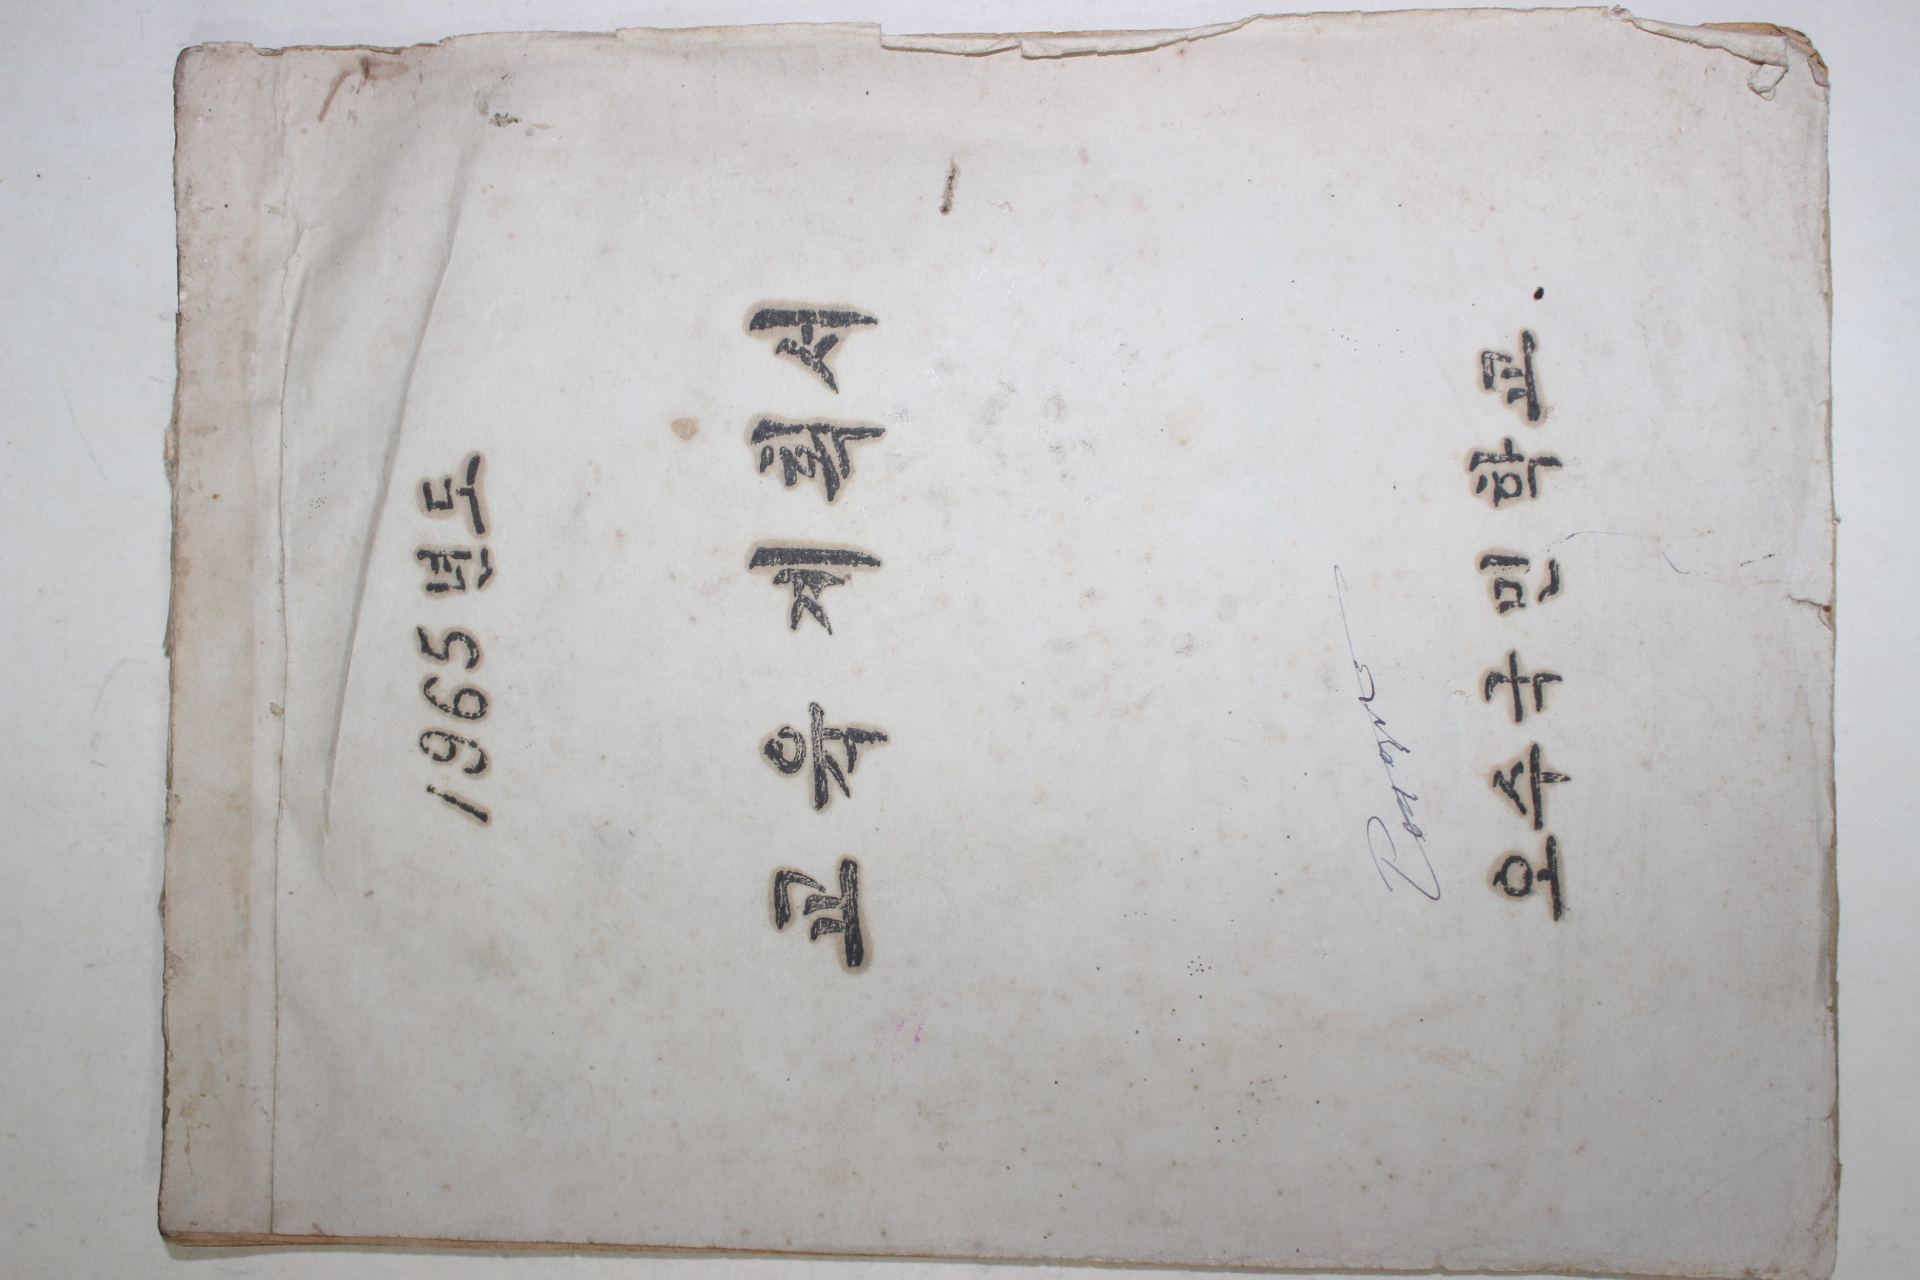 1965년도
교육계획서
오수국민학교